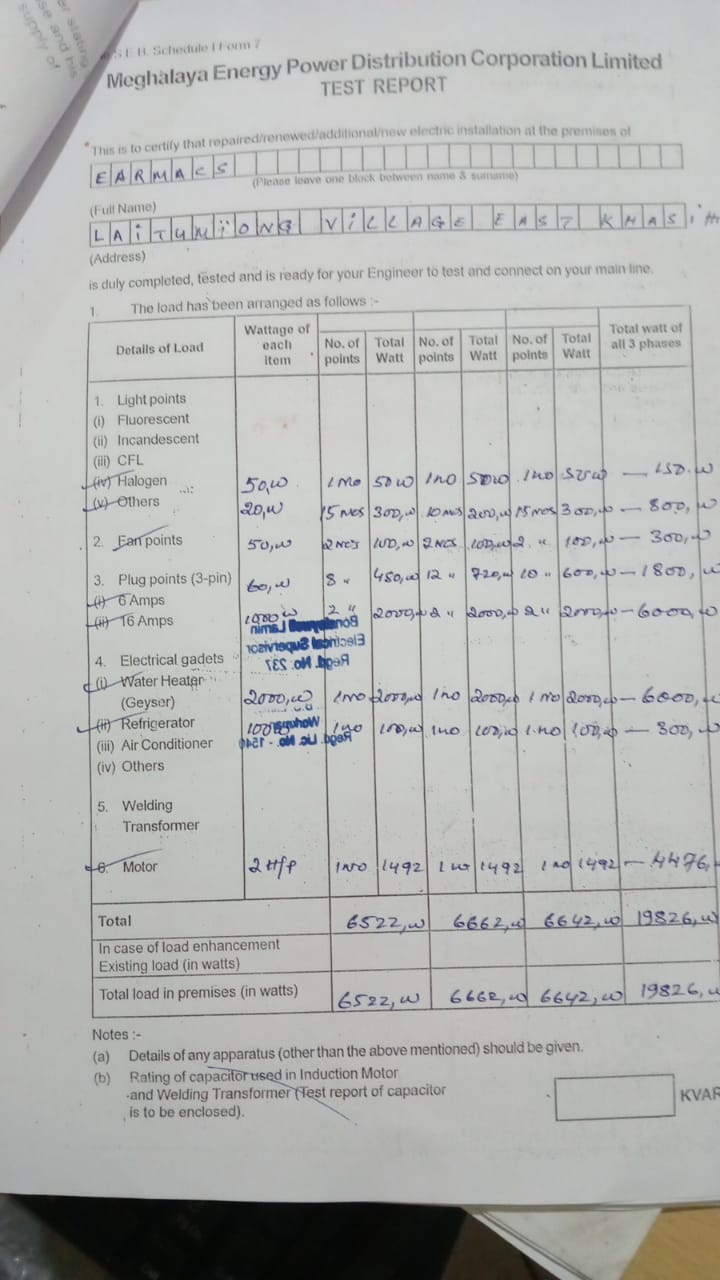 er stating
se and his
supply of
S.E.B. Schedule I Form 7
Meghalaya Energy Power Distribution Corporation Limited
TEST REPORT
* This is to certify that repaired/renewed/additional/new electric installation at the premises of
EARMACS
(Please leave one block between name & surname)
(Full Name)
LAITUMIONG VILLAGE EAST KHASI
(Address)
is duly completed, tested and is ready for your Engineer to test and connect on your main line.
1. The load has been arranged as follows :-
Details of Load Wattage of each item No. of points Total Watt No. of points Total Watt No. of points Total Watt Total watt of all 3 phases
1. Light points
(i) Fluorescent
(ii) Incandescent
(iii) CFL
(iv) Halogen 50,w 1 no 50 w 1 no 50w 1 no 50w — 150. w
(v) Others 20,w 15 nos 300,w 10 nos 200,w 15 nos 300,w — 800, w
2. Fan points 50,w 2 nos 100,w 2 nos 100,w 2 " 100,w — 300, w
3. Plug points (3-pin) 60,w 8 " 480,w 12 " 720,w 10 " 600,w — 1800, w
(i) 6 Amps
(ii) 16 Amps 1000 w 2 " 2000,w 2 " 2000,w 2 " 2000,w — 6000, w
Lamin
Electrical Supervisor
Regd. No. 237
4. Electrical gadets
(i) Water Heater
(Geyser) 2000,w 1 no 2000,w 1 no 2000,w 1 no 2000,w — 6000, w
(ii) Refrigerator 100 w 1 no 100,w 1 no 100,w 1 no 100,w — 300, w
Regd. Lic. No. - 1540
(iii) Air Conditioner
(iv) Others
5. Welding
Transformer
6. Motor 2 H/P 1 no 1492 1 no 1492 1 no 1492 — 4476,
Total 6522,w 6662,w 6642,w 19826,w
In case of load enhancement
Existing load (in watts)
Total load in premises (in watts) 6522,w 6662,w 6642,w 19826, w
Notes :-
(a) Details of any apparatus (other than the above mentioned) should be given.
(b) Rating of capacitor used in Induction Motor
-and Welding Transformer (Test report of capacitor
is to be enclosed).
KVAR